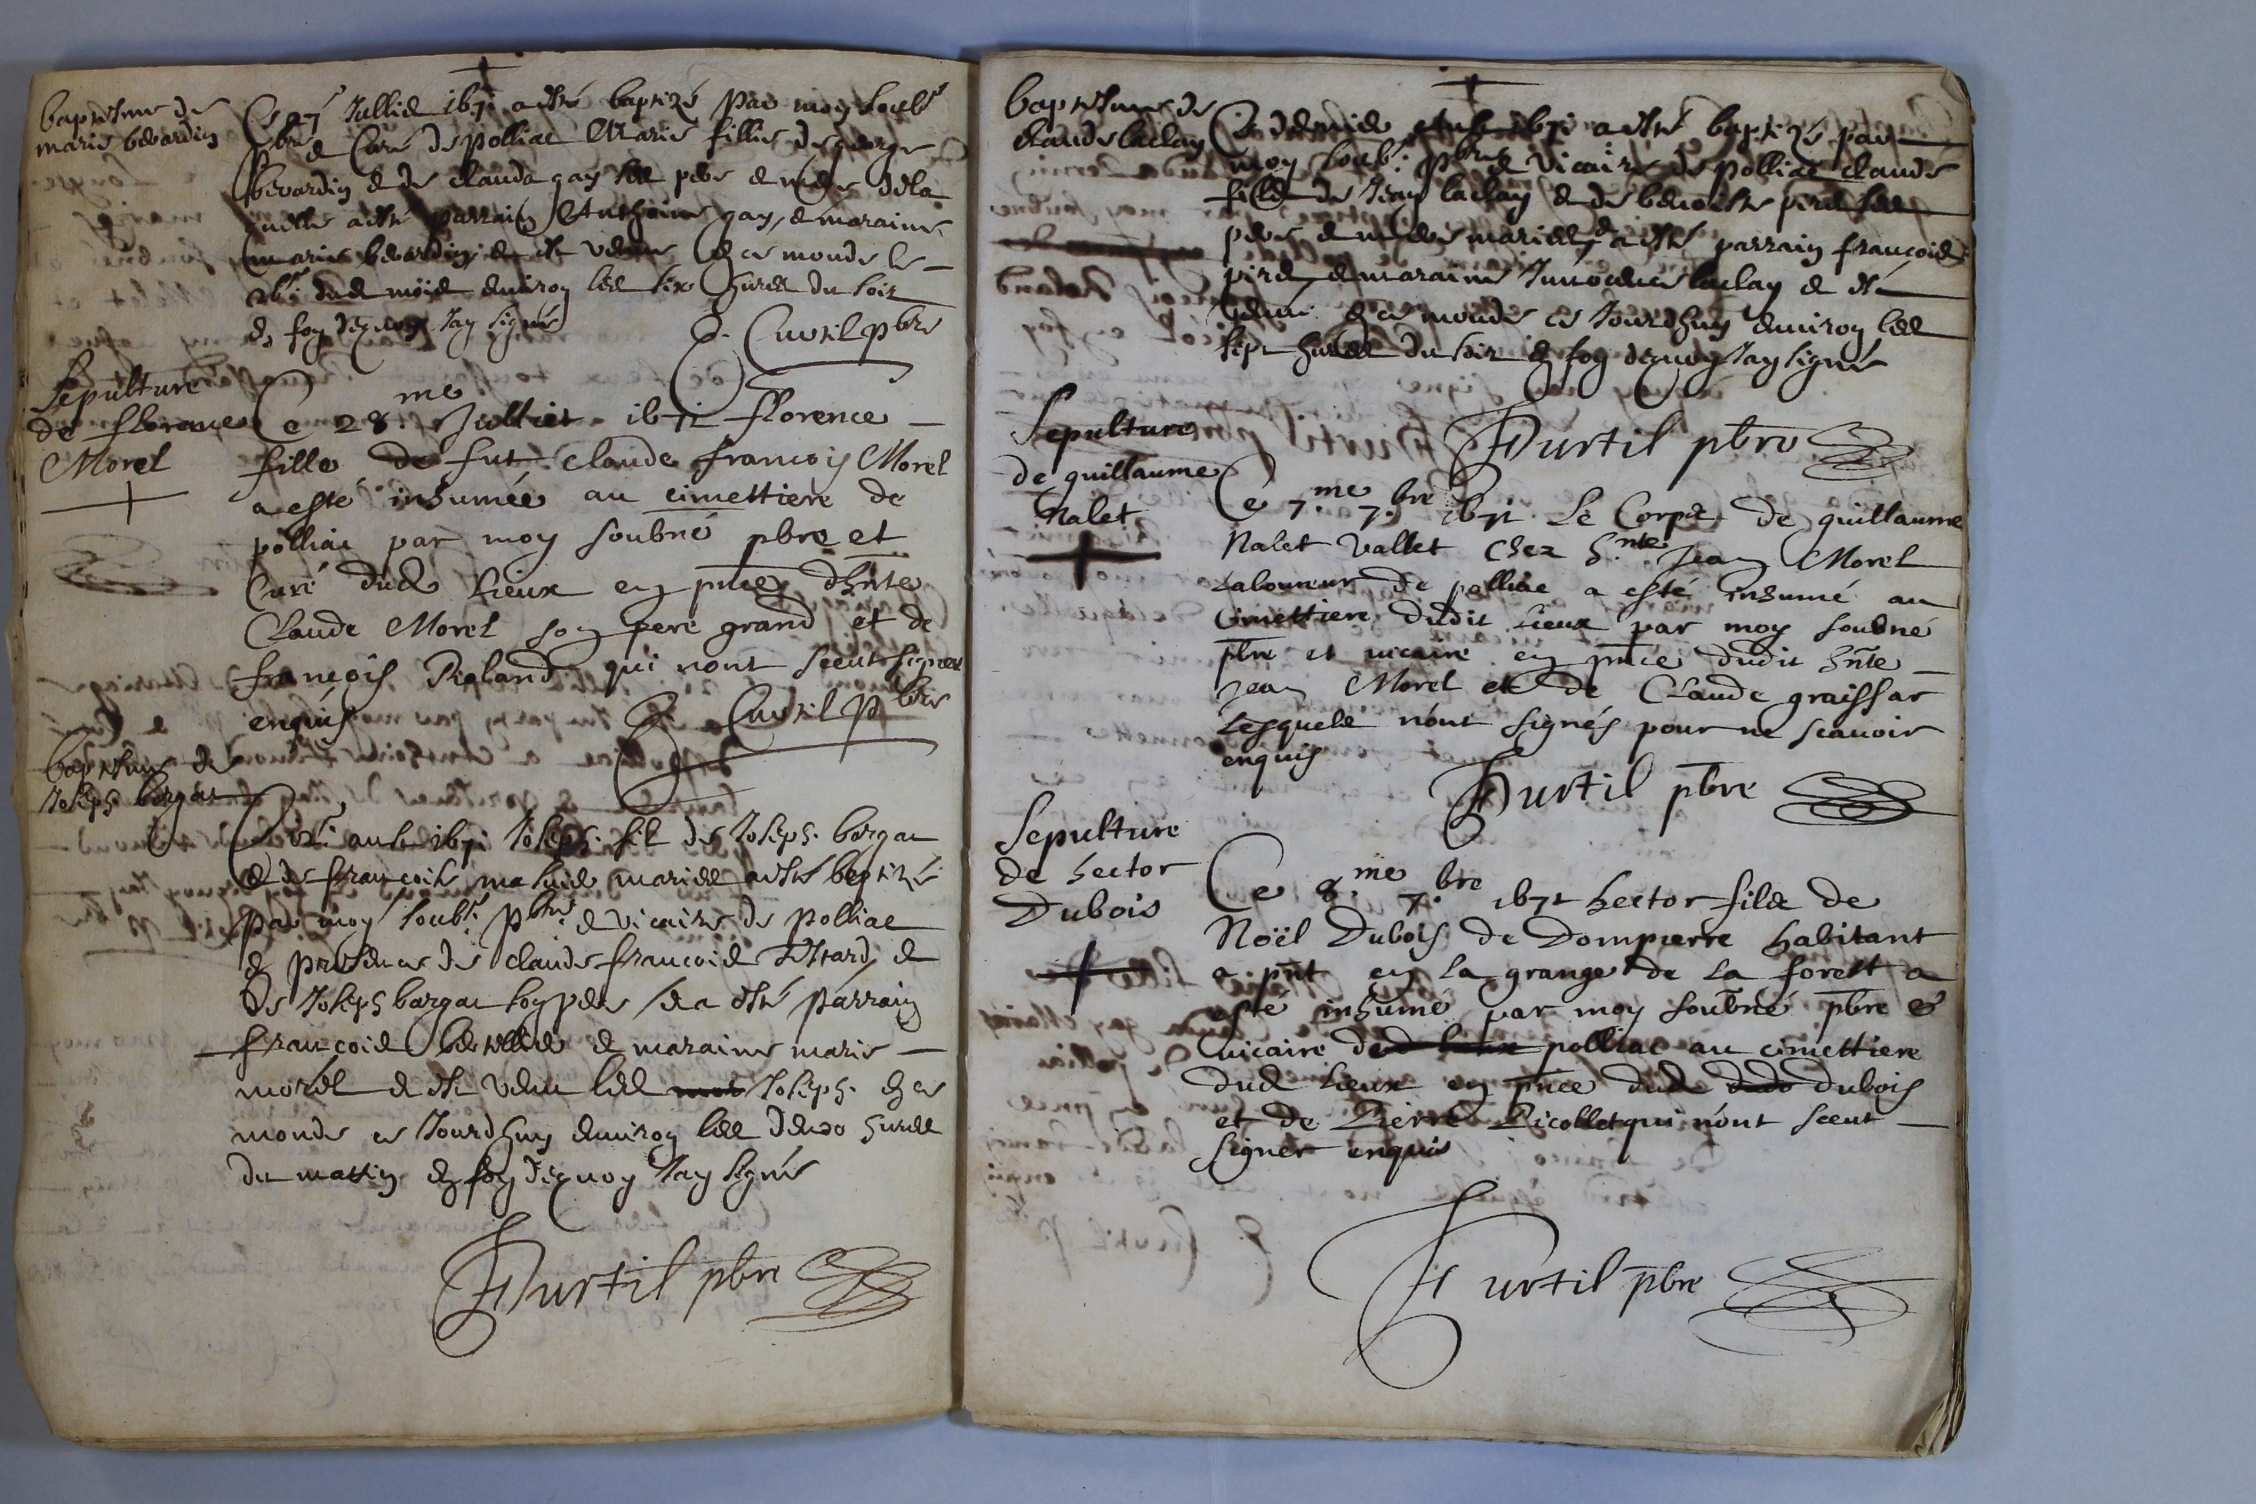 baptesme de
marie bevardin
Ce 27 Jullie 1671 a esté baptizé par moy soubs
pbre & Curé de polliac Marie fillie de george
bevardin & de clauda gay ses pere & mere de la
quelle a esté parrain Anthoine gay, & maraine
marie bevardin & est venue en ce monde le
dud mois environ les six heures du soir
en foy dequoy Jay signé
Curtil pbre
Sepulture
de florence
Morel
Ce 28 me Juilliet 1671 florence
fille de fut Claude francois Morel
a esté inhumée au cimettiere de
polliac par moy soubné pbre et
Curé dud Lieux en pnce dhnte
Claude Morel son pere grand et de
francois Roland qui nont sceut signer
enquis
Curtil pbre
baptesme de
Joseph borgat
Ce aust 1671 Joseph fils de Joseph borgat
& de francoise mariez a esté baptizé
par moy soubs. pbre & vicaire de polliac
en presence de claude francois & 
de Joseph borgat son pere / & a esté parrain
francois & maraine marie
morel & est venu led Joseph en ce
monde ce Jourdhuy environ les deux hures
du mattin en foy dequoy Jay signé
Curtil pbre
baptesme de
claude laclay
Ce a esté baptizé par
moy soubs. pbre & vicaire de polliac claude
fille de Jean laclay & de benoiste ses
pere & mere mariez, & a esté parrain francois
& maraine Innocence laclay & est
venu en ce monde ce Jourdhuy environ les
sept hures du soir en foy dequoy Jay signé
Curtil pbre
Sepulture
de guillaume
Nalet
Ce 7.me 7.bre 1671 Le Corps de guillaume
Nalet Vallet Chez h.nte Jean Morel
Laboureur de polliac a esté inhumé au
Cimettiere dudit Lieux par moy soubné
pbre et vicaire en pnce dudit hnte
Jean Morel et de Claude graissar
Lesquels nont signés pour ne scavoir
enquis
Curtil pbre
Sepulture
de hector
Dubois
Ce 8.me 7.bre 1671 hector fils de
Noël Dubois de Dompierre habitant
a pnt en la grange de la forest a
esté inhumé par moy soubné pbre &
vicaire de polliac au cimettiere
dud Lieux en pnce dud dubois
et de Pierre Picollet qui nont sceut
signer enquis
Curtil pbre